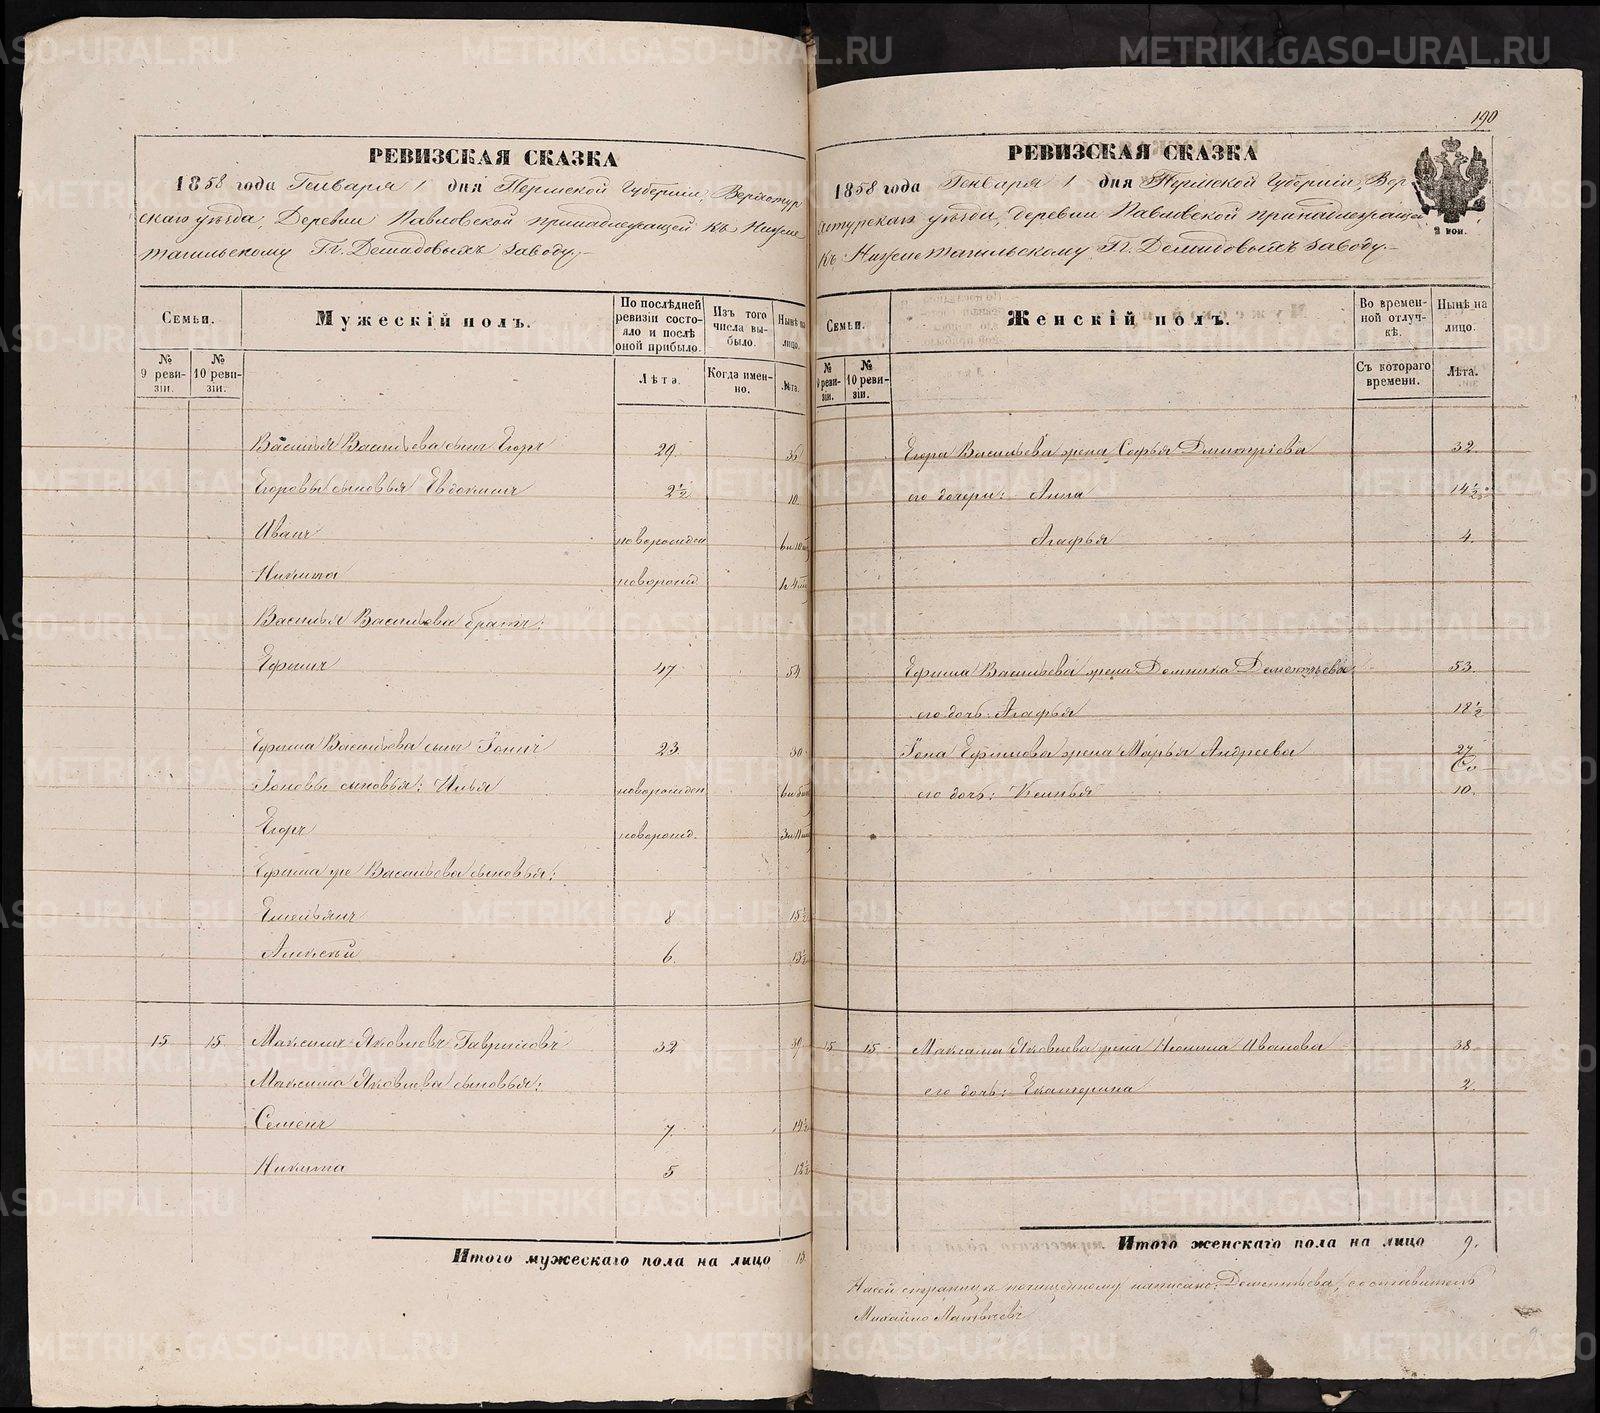 РЕВИЗСКАЯ СКАЗКА
1858 года Генваря 1 дня Пермской Губерніи, Верхотур
скаго уѣзда, Деревни Павловской принадлежащей къ Нижне
тагильскому Гг. Демидовыхъ заводу.
Семьи.
Мужескій полъ.
По послѣдней ревизіи состояло и послѣ оной прибыло.
Изъ того числа выбыло.
Нынѣ на лицо.
№ 9 ревизіи.
№ 10 ревизіи.
Лѣта.
Когда именно.
Лѣта.
Василья Васильева сынъ Егоръ 29 36
Егоровы сыновья Евдокимъ 2½ 10.
Иванъ новорожден
Никита новорожд.
Василья Васильева братъ:
Ефимъ 47 54
Ефима Васильева сынъ Іона 23 30
Іоновы сыновья: Илья новорожден
Егоръ новорожд.
Ефима же Васильева сыновья:
Емельянъ 8 15½
Алексѣй 6. 13½
15 15 Максимъ Яковлевъ Гавриловъ 32 39
Максима Яковлева сыновья:
Семенъ 7. 14½
Никита 5 12½
Итого мужескаго пола на лицо 13.
190
РЕВИЗСКАЯ СКАЗКА
1858 года Генваря 1 дня Пермской Губерніи, Вер
хотурскаго уѣзда, деревни Павловской принадлежащей
къ Нижнетагильскому Гг. Демидовыхъ заводу.
Семьи.
Женскій полъ.
Во временной отлучкѣ.
Нынѣ на лицо.
№ 9 ревизіи.
№ 10 ревизіи.
Съ котораго времени.
Лѣта.
Егора Васильева жена Софья Дмитріева 32.
его дочери: Анна 14½
Агафья 4.
Ефима Васильева жена Домника Дементьева 53.
его дочь: Агафья 18½
Іона Ефимова жена Марья Андреева 27
его дочь: 10.
15 15 Максима Яковлева жена Ивановa 38.
его дочь: Екатерина 2.
Итого женскаго пола на лицо 9.
На сей страницѣ по чищенному написано: Дементьева, составитель
Михайло Матвѣевъ
METRIKI.GASO-URAL.RU